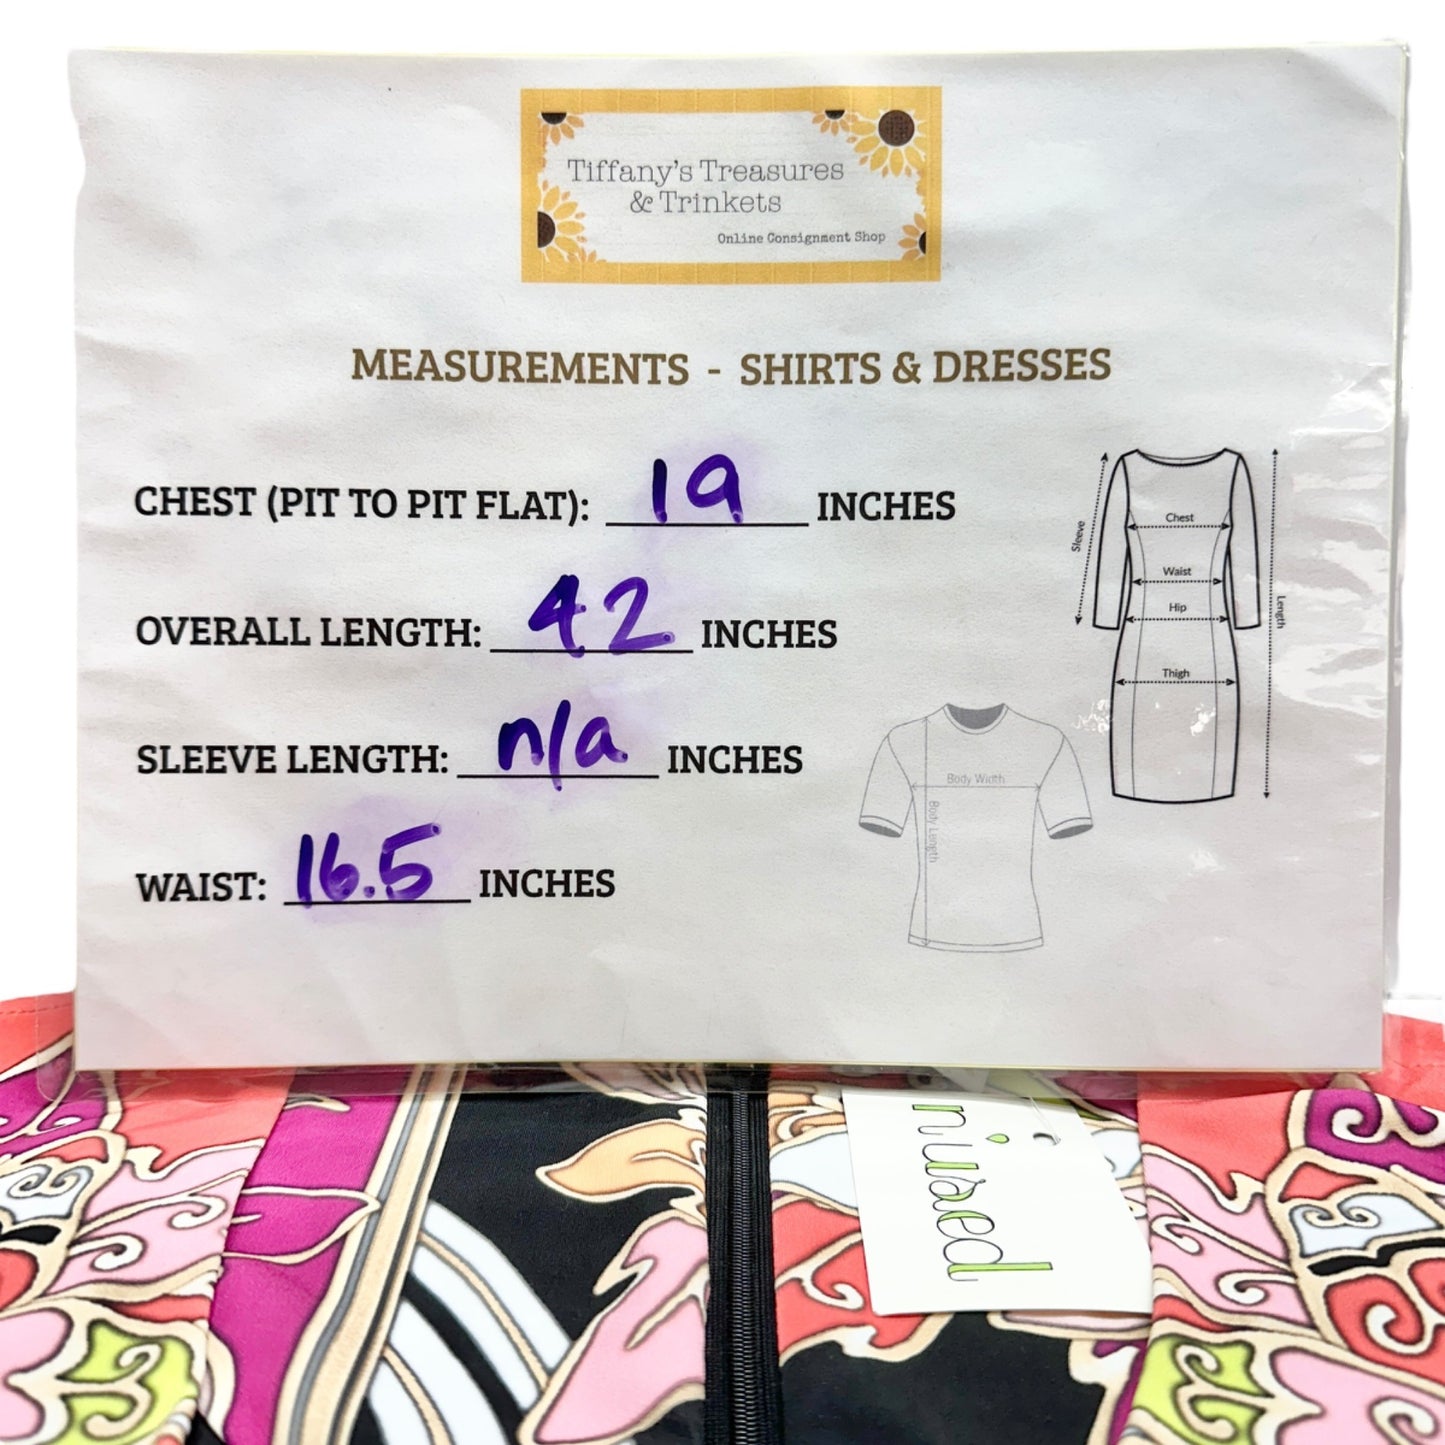 Tiffany's Treasures
& Trinkets
Online Consignment Shop
MEASUREMENTS - SHIRTS & DRESSES
CHEST (PIT TO PIT FLAT): 19 INCHES
OVERALL LENGTH: 42 INCHES
SLEEVE LENGTH: n/a INCHES
WAIST: 16.5 INCHES
Sleeve
Chest
Waist
Hip
Thigh
Length
Body Width
Body Length